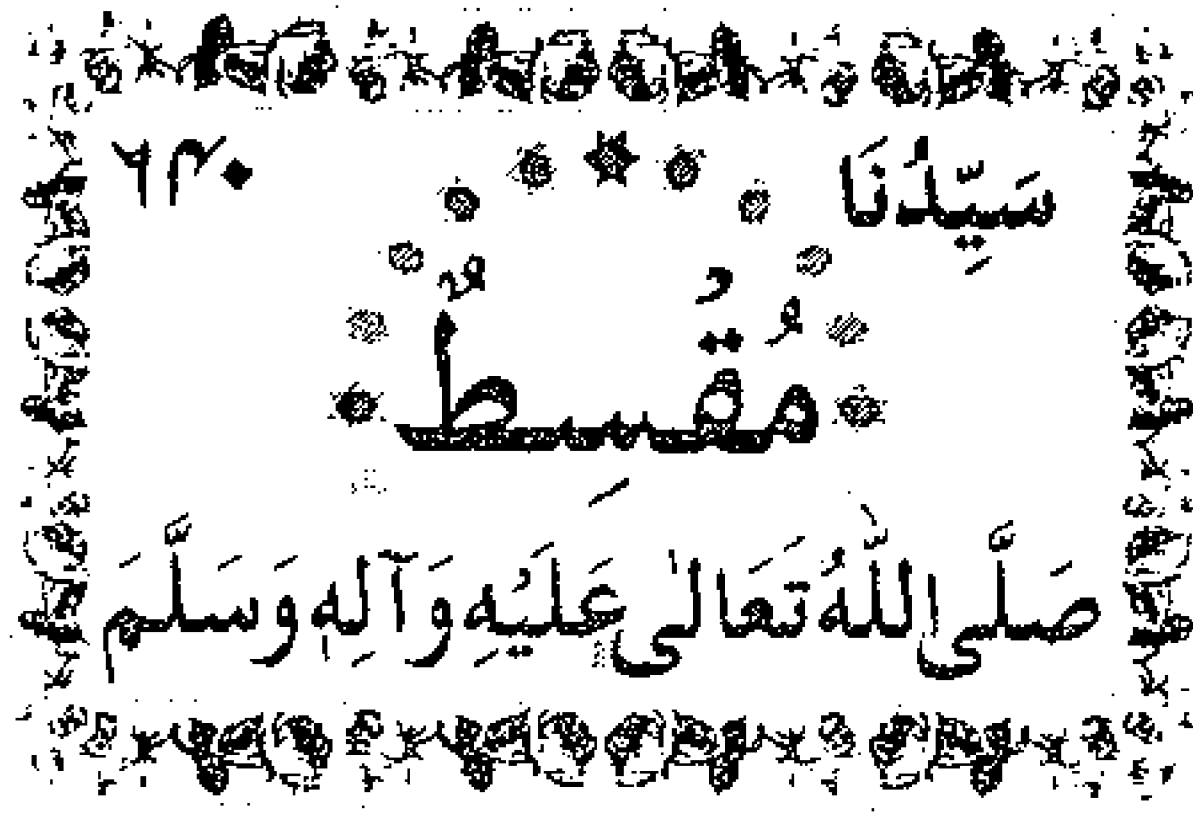 سَيِّدُنَا ۶۴۰
مُقْسِطٌ
صَلَّی اللّٰهُ تَعَالٰی عَلَيْهِ وَآلِهٖ وَسَلَّمَ